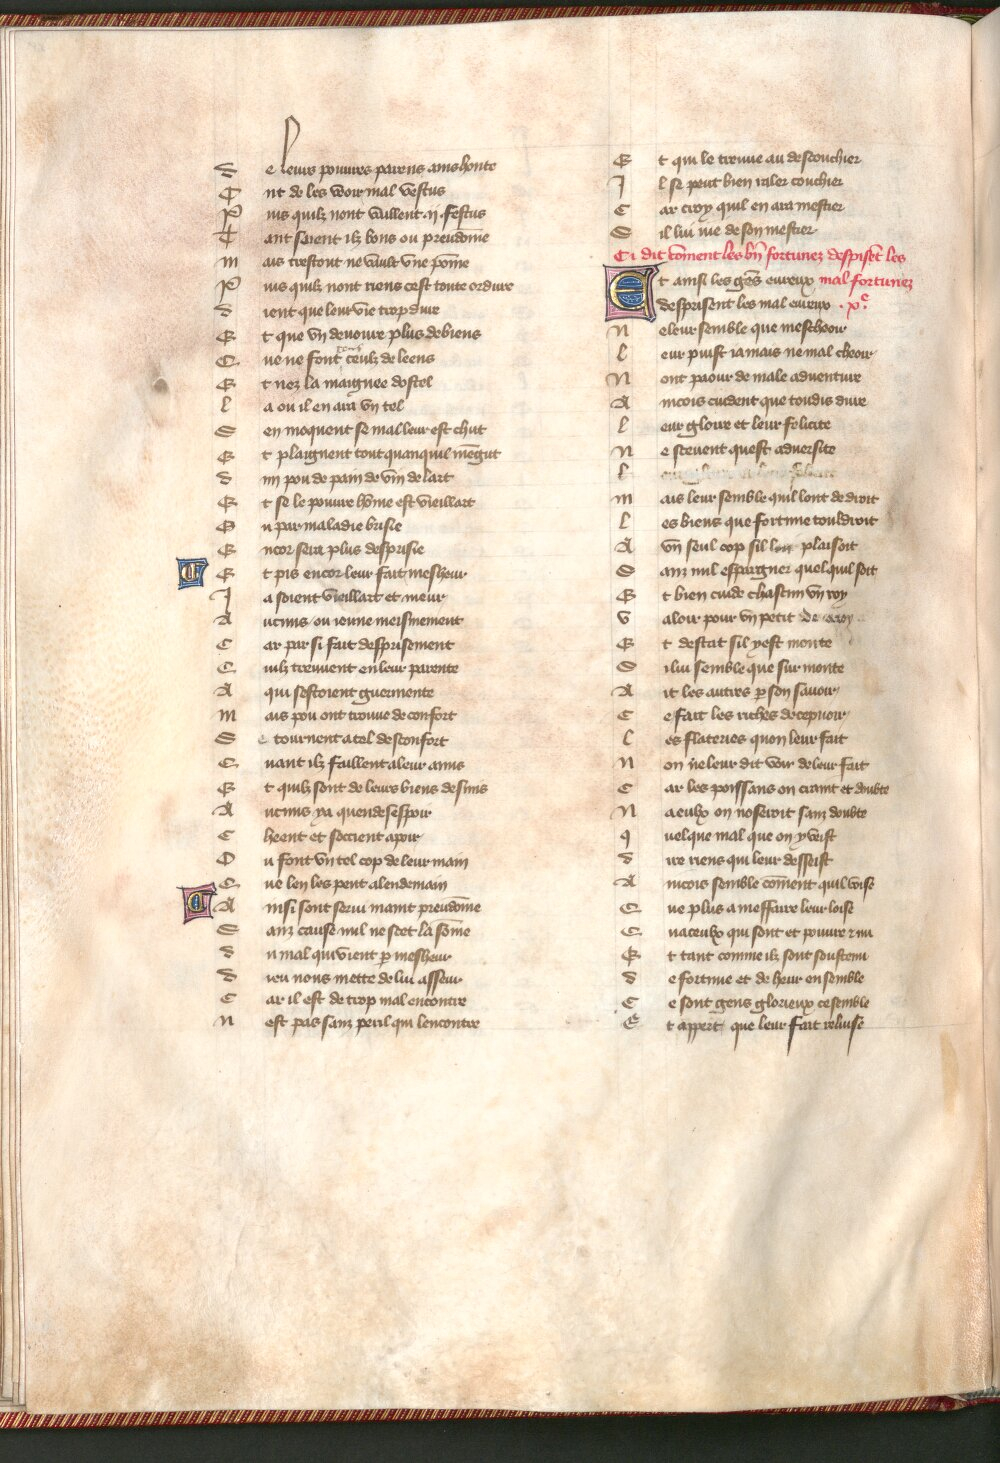 De leurs pouures parens ains honte
Ont de les veoir mal vestus
Puis quilz nont vaillent .ij. festus
Tant soient ilz bons ou preudome
Mais trestout ne vault vne pome
Puis quilz nont riens cest toute ordure
Dient que leur vie trop dure
Et que vn deuoure plus de biens
Que ne font ceulz de leens
Et nez la maignee dostel
La ou il en ara vn tel
Sen moquent se malleur est chut
Et plaignent tout quanquil mengut
Dun pou de pain de vin de lart
Et se le pouure home est vieillart
Ou par maladie brisie
Encor sera plus desprisie
Et pis encor leur fait mesheur
Ja soient vieillart et meur
Aucuns ou ieune meismement
Car par si fait desprisement
Quilz treuuent en leur parente
A qui sestoient guermente
Mais pou ont trouue de confort
Se tournent a tel desconfort
Quant ilz faillent a leur amis
Et quilz sont de leurs biens desmis
Aucuns ya quen desespoir
Cheent et soccient apoir
Ou font vn tel cop de leur main
Que len les pent a lendemain
Ainsi sont serui maint preudome
Sanz cause nul ne scet la some
Du mal qui vient p mesheur
Dieu nous mette de lui asseur
Car il est de trop mal encontre
Nest pas sanz peril qui lencontre
Et qui le treuue au descouchier
Il se peut bien raler couchier
Car croy quil en ara mestier
Sil lui iue de son mestier
Ci dit coment les bn fortunez despiset les
mal fortunez
Et ainsi les gens eureux
desprisent les mal eureux . xe
Ne leur semble que mescheoir
Leur puist iamais ne mal cheoir
Nont paour de male aduenture
Aincois cuident que toudis dure
Leur gloire et leur felicite
Ne sceuent quest aduersite
Mais leur semble quil lont de droit
Les biens que fortune touldroit
A vn seul cop sil lui plaisoit
Sanz nul espargner quel quil soit
Et bien cuide chascun vn roy
Valoir pour vn petit de
Et destat sil y est monte
Si lui semble que surmonte
Ait les autres p son sauoir
Ce fait les riches decepuoir
Les flateries quon leur fait
Non ne leur dit voir de leur fait
Car les poissans on craint et doubte
Na eulx on noseroit sanz doubte
Quelque mal que on y veist
Dire riens qui leur desseist
Aincois semble coment quil voise
Que plus a meffaire leur loise
Qua ceulx qui sont et pouure z nu
Et tant comme ilz sont soustenu
De fortune et de heur ensemble
Ce sont gens glorieux ce semble
Et appert que leur fait reluise